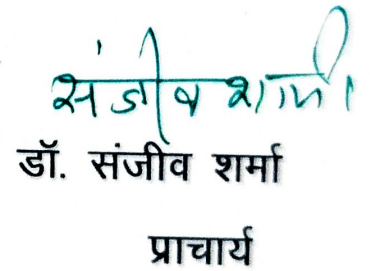 संजीव शर्मा
डॉ. संजीव शर्मा
प्राचार्य